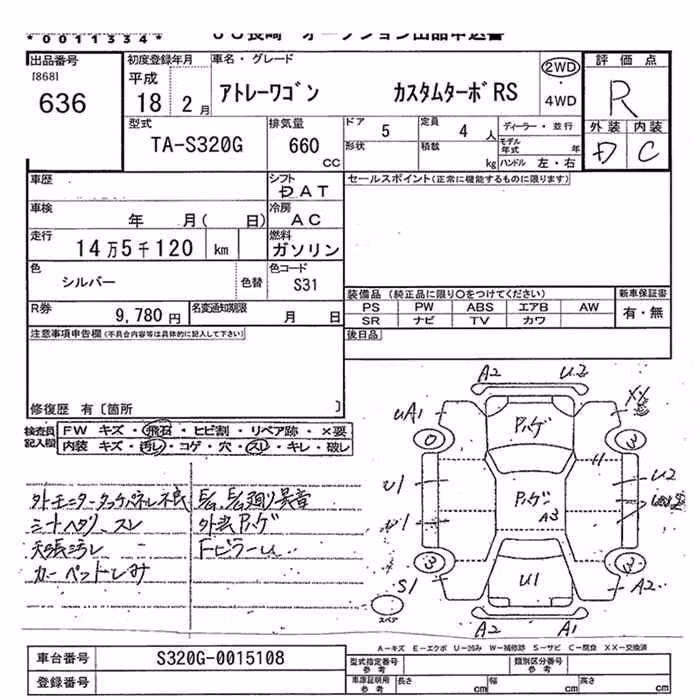 *0011334* JU長崎 オークション出品申込書
出品番号 初度登録年月 車名・グレード 評価点
[868] 平成 2WD
636 18 2月 アトレーワゴン カスタムターボRS ・ R
4WD
型式 排気量 ドア 5 定員 4人 ディーラー・並行 外装 内装
TA-S320G 660 CC 形状 積載 kg モデル年式 年 C
ハンドル 左・右
車歴 シフト DAT セールスポイント(正常に機能するものに限ります)
車検 年 月( 日) 冷房 AC
走行 14万5千120 km 燃料 ガソリン
色 シルバー 色替 色コード S31
装備品(純正品に限り○をつけてください) 新車保証書
R券 9,780円 名変通知期限 月 日 PS PW ABS エアB AW 有・無
SR ナビ TV カワ
注意事項申告欄(不具合内容等は具体的に記入して下さい) 後日品
修復歴 有〔箇所 〕
検査員記入欄 FW キズ・飛石・ヒビ割・リペア跡・X要
内装 キズ・汚レ・コゲ・穴・スレ・キレ・破レ
A2 U2
uA1 XX
P.ゲ
0 3
U1 P.ゲ U2
U1 A3
3 3
S1 U1 A2
スペア
A2 A1
外モニタータッチパネル不良
シートヘタリ、スレ 外装P.ゲ
天張汚レ
カーペットしみ
A-キズ E-エクボ U-凹み W-補修跡 S-サビ C-腐食 XX-交換済
車台番号 S320G-0015108 型式指定番号 参考 類別区分番号 参考
登録番号 車庫証明用 参考 長さ cm 幅 cm 高さ cm